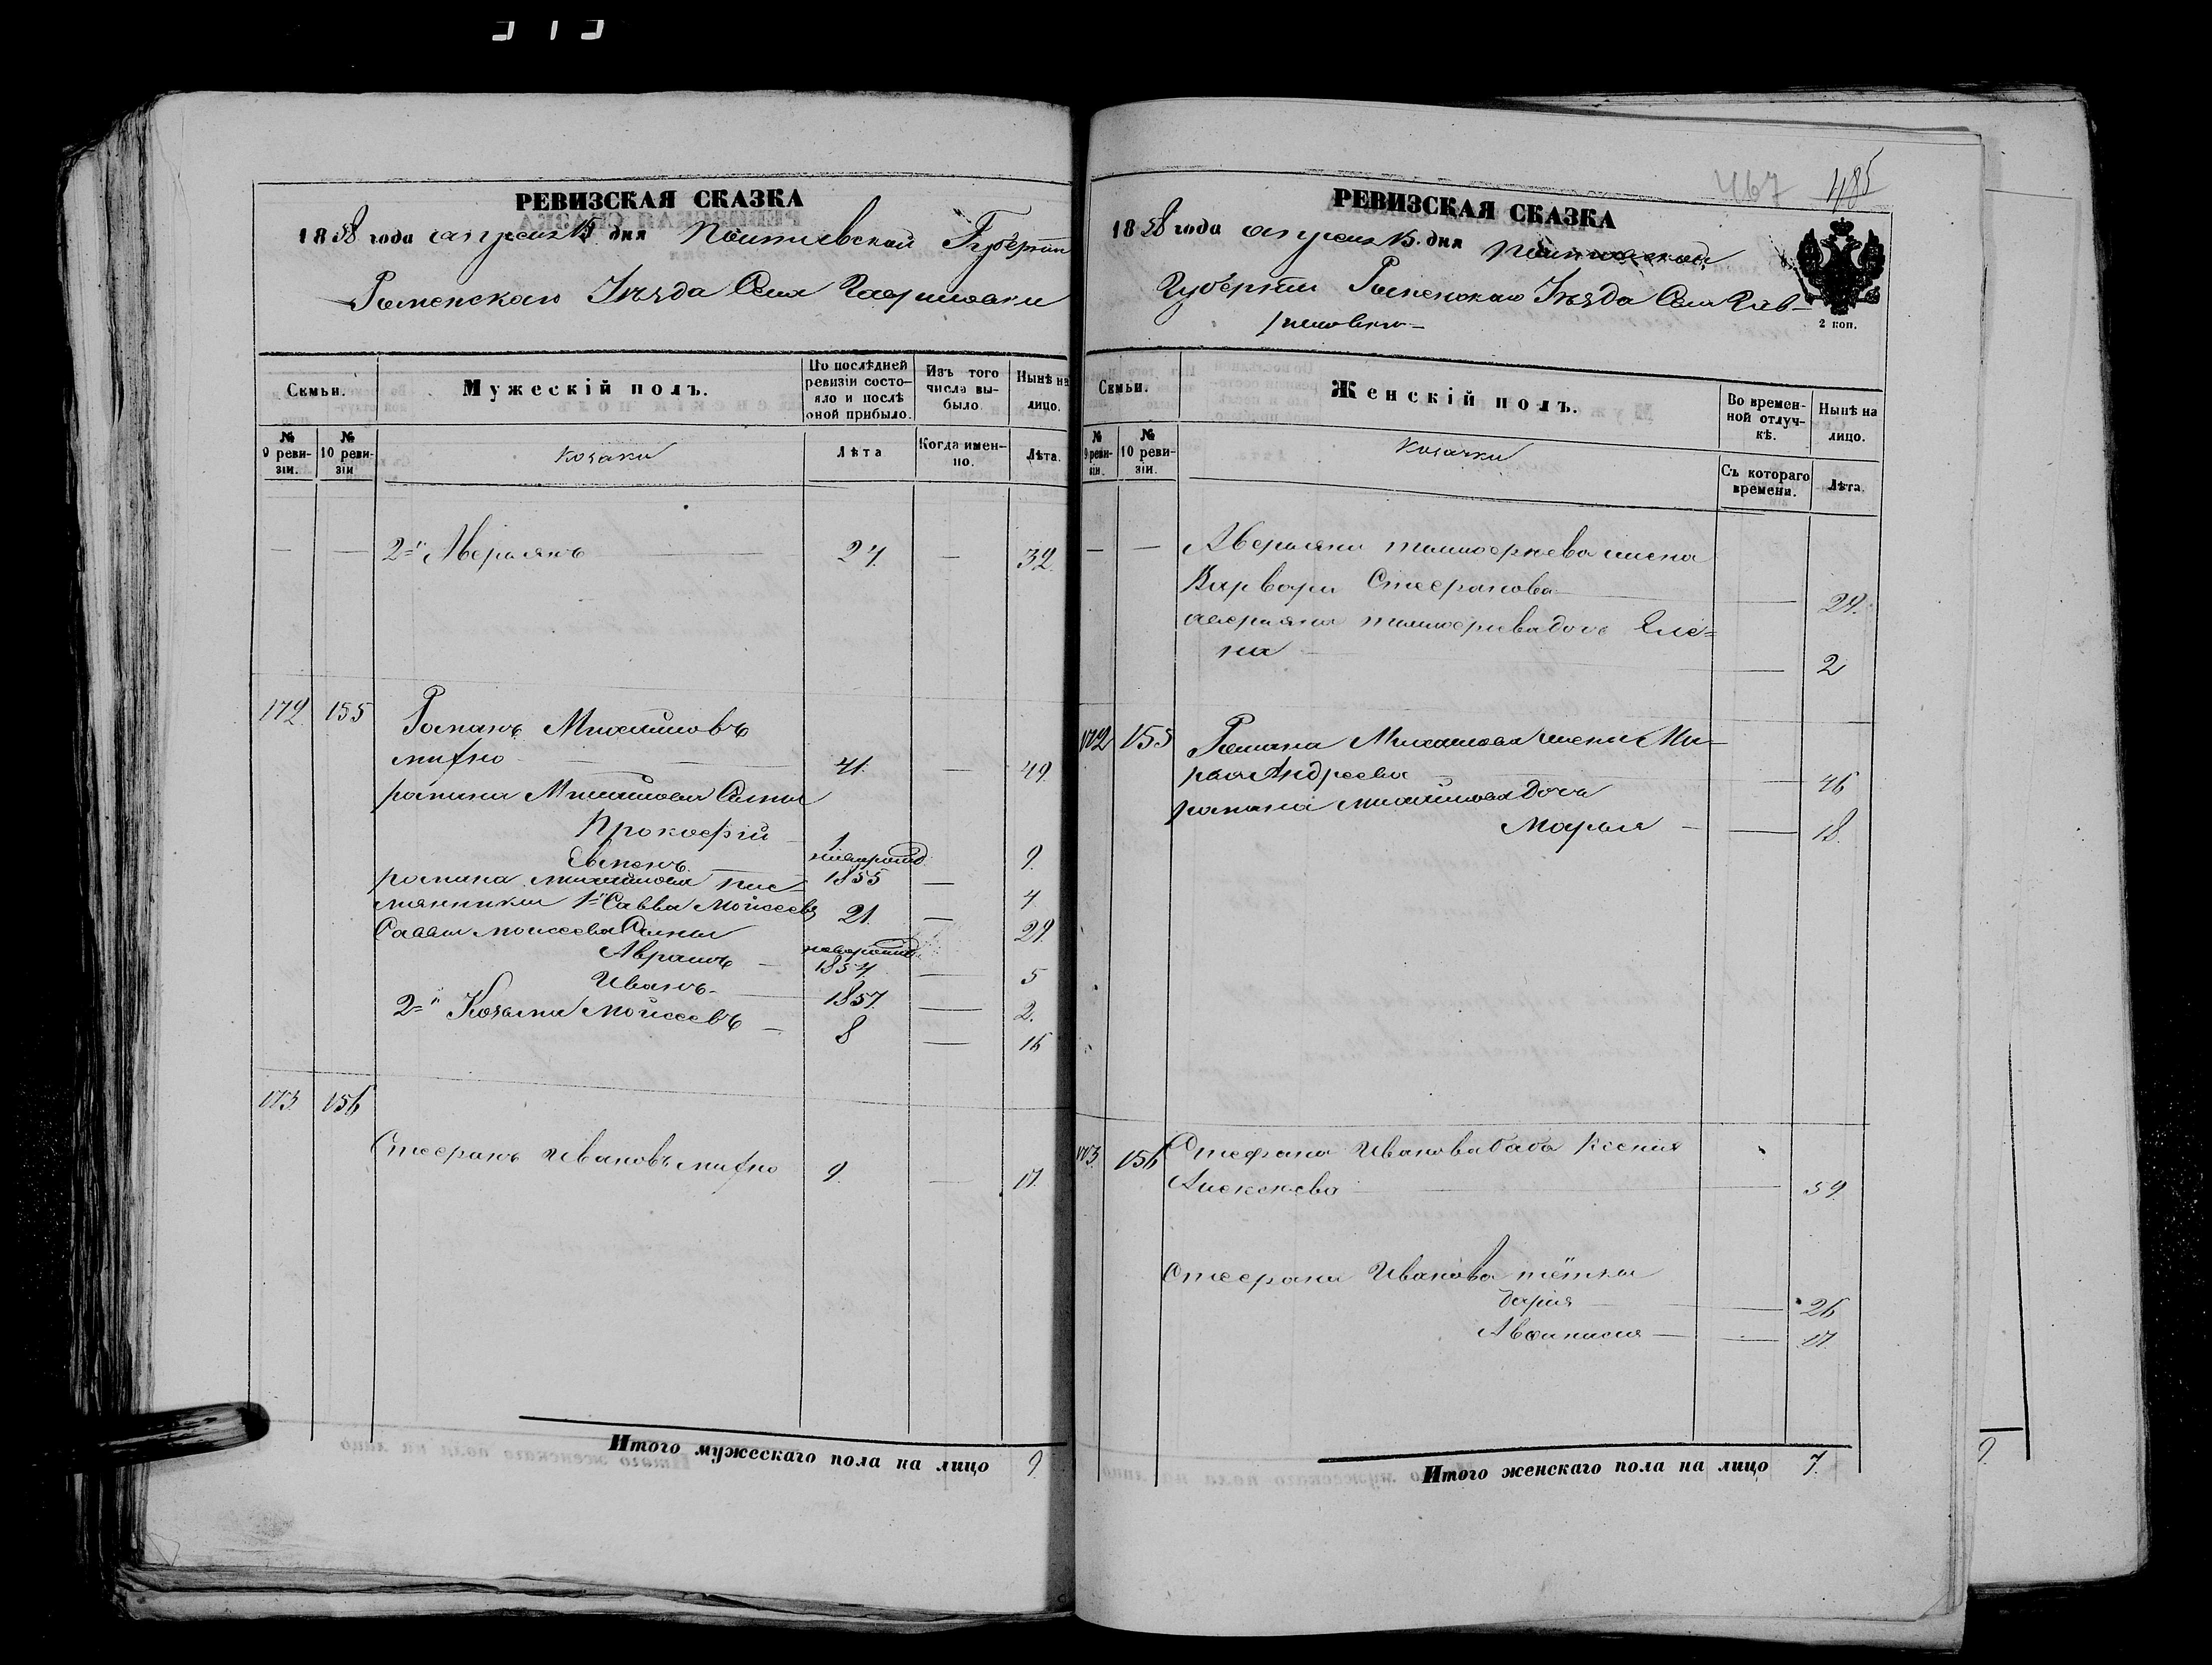 РЕВИЗСКАЯ СКАЗКА
1858 года апреля 15 дня Полтавской Губернии
Роменскаго Уѣзда Села Гавриловки
Семьи.
Мужескій полъ.
По послѣдней ревизіи состояло и послѣ оной прибыло.
Изъ того числа выбыло.
Нынѣ на лицо.
№ 9 ревизіи.
№ 10 ревизіи
Козаки
Лѣта
Когда именно.
Лѣта.
— — 2-й Аверьянъ — 24 — 32.
172 155 Романъ Михайловъ
41. — 49
романа Михайлова Сыны
Прокофій 1 9.
Семенъ новорожд. 1855 — 4
романа Михайлова пле-
мянники 1-й Савва Мойсеевъ 21. — 29.
Саввы Мойсеева Сыны
Аврамъ — новорожд. 1854. — 5
Иванъ — 1857. — 2.
2-й Козьма Мойсеевъ — 8 — 16
173. 156
Стефанъ Ивановъ 9. — 17.
Итого мужескаго пола на лицо 9.
467 485
РЕВИЗСКАЯ СКАЗКА
1858 года апреля 15. дня Полтавской
Губерніи Роменскаго Уѣзда Села Гав-
риловки
2 коп.
Семьи.
Женскій полъ.
Во временной отлучкѣ.
Нынѣ на лицо.
№ 9 ревизіи.
№ 10 ревизіи.
Козачки
Съ котораго времени.
Лѣта.
— — Аверьяна Тимофѣева жена
Варвара Стефанова — 29.
аверьяна тимофѣева дочь Еле=
на — 2
172 155 Романа Михайлова жена Ма-
рья Андреева — 46
романа михайлова дочь
Марья — 18.
173. 156 Стефана Иванова баба Ксенія
Алексѣева — 59.
Стефана Иванова тётки
Дарія — 26
— 17.
Итого женскаго пола на лицо 7.
9.